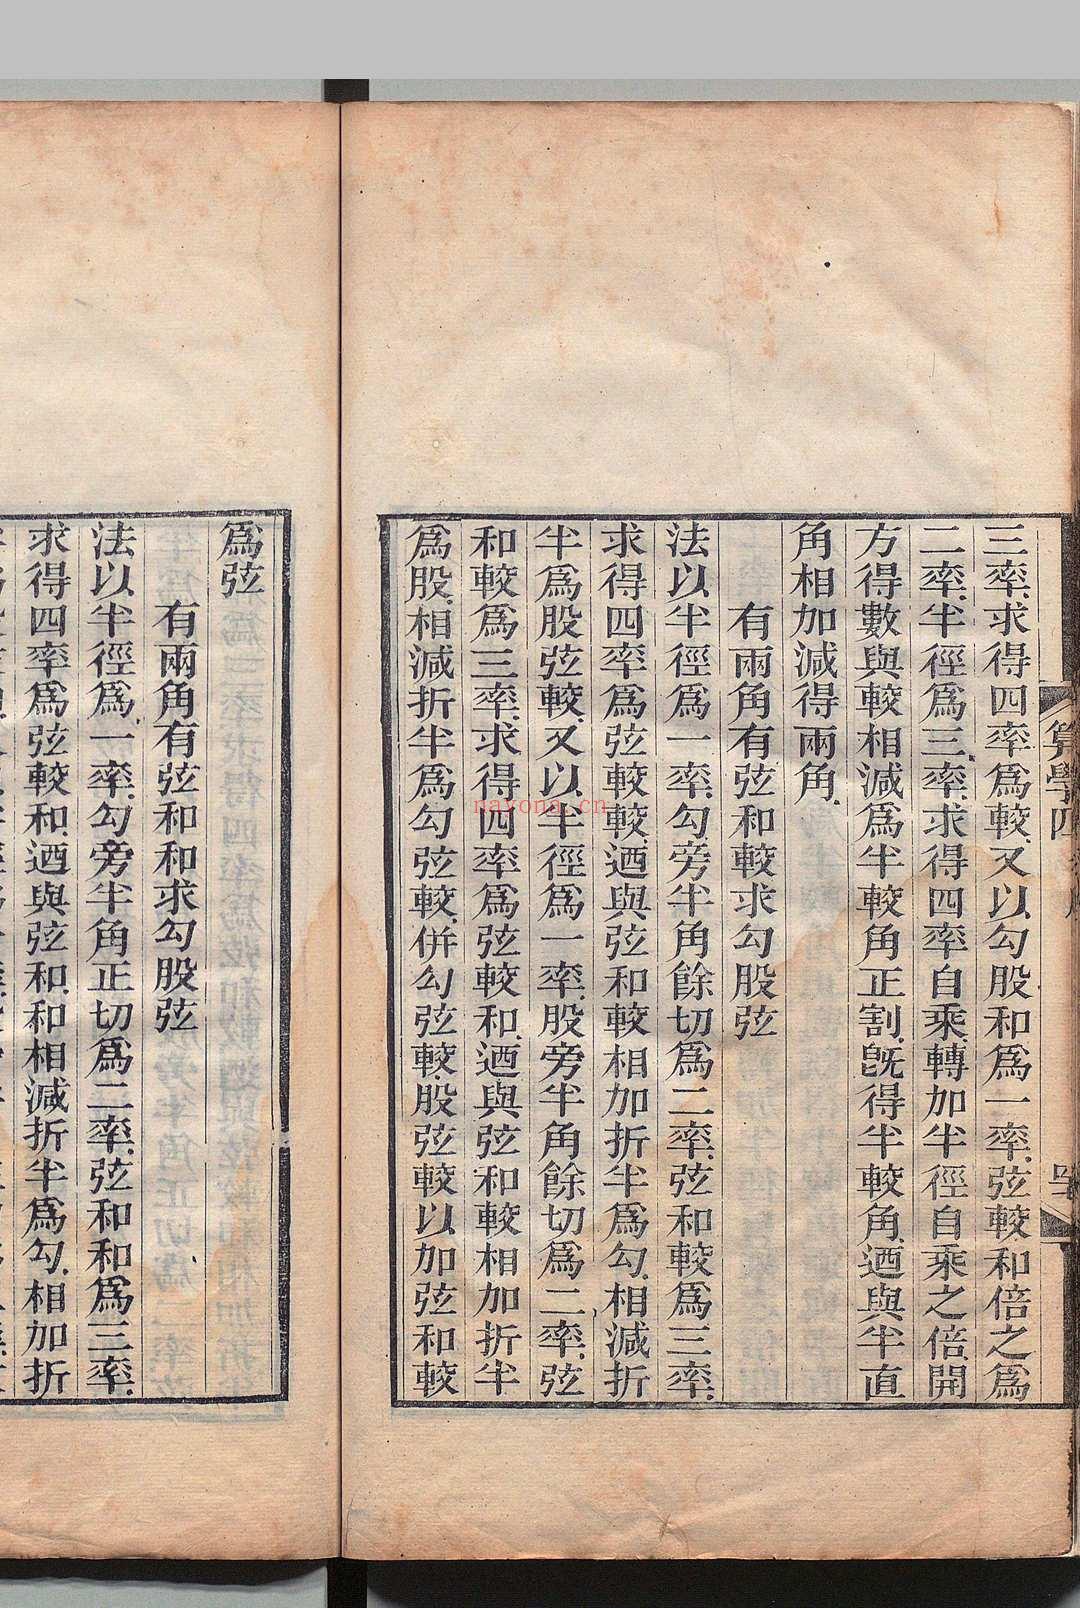 三率求得四率爲較又以勾股和爲一率弦較和倍之爲
二率半徑爲三率求得四率自乘轉加半徑自乘之倍開
方得數與較相減爲半較角正割旣得半較角迺與半直
角相加減得兩角
有兩角有弦和較求勾股弦
法以半徑爲一率勾旁半角餘切爲二率弦和較爲三率
求得四率爲弦較較迺與弦和較相加折半爲勾相減折
半爲股弦較又以半徑爲一率股旁半角餘切爲二率弦
和較爲三率求得四率爲弦較和迺與弦和較相加折半
爲股相減折半爲勾弦較併勾弦較股弦較以加弦和較
爲弦
有兩角有弦和和求勾股弦
法以半徑爲一率勾旁半角正切爲二率弦和和爲三率
求得四率爲弦較和迺與弦和和相減折半爲勾相加折
算學四
nayona.cn